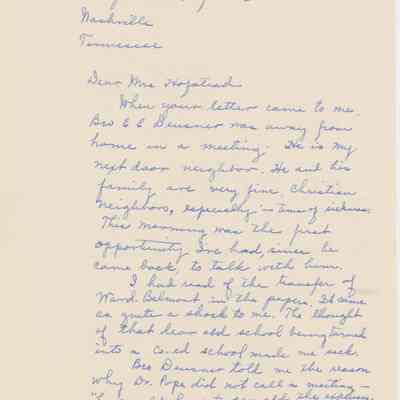 Nashville
Tennessee
Dear Mrs
When your letter came to me,
Bro E E Deusner was away from
home in a meeting. He is my
next door neighbor. He and his
family are very fine Christian
neighbors, especially in time of sickness.
This morning was the first
opportunity I've had, since he
came back, to talk with him.
I had read of the transfer of
Ward-Belmont in the papers. It came
as quite a shock to me. The thought
of that dear old school being turned
into a co-ed school made me sick.
Bro Deusner told me the reason
why Dr. Pope did not call a meeting -